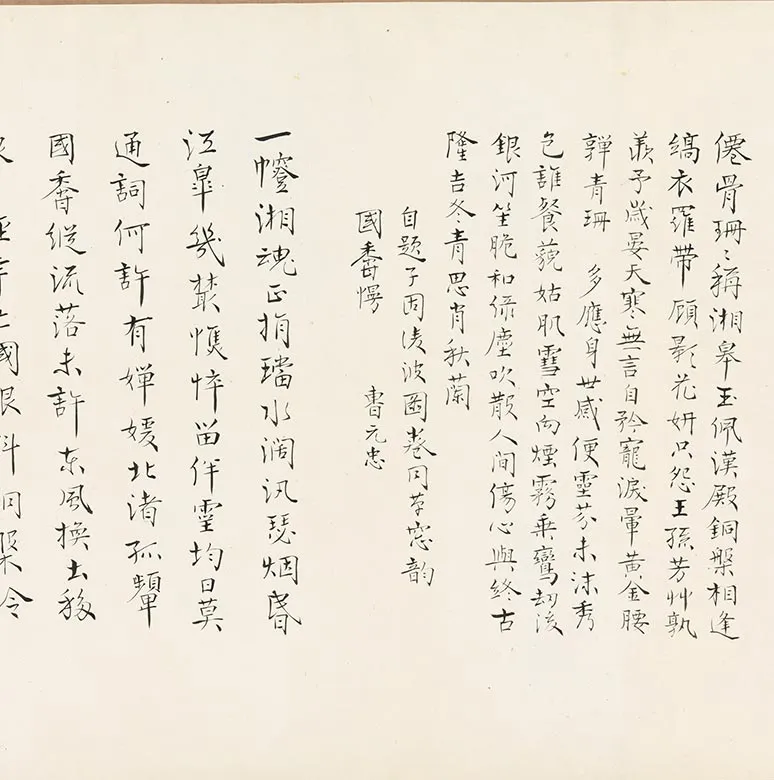 僊骨珊〻稱湘皋玉佩漢殿銅槃相逢
縞衣羅帶顧影花妍只怨王孫芳艸孰
羨予歲晏天寒無言自矜寵淚暈黃金腰
嚲青珊 多應身世感便靈芬未沬秀
色誰餐藐姑肌雪空向煙霧乘鸞劫後
銀河笙脆和綠塵吹散人間傷心與終古
隆吉冬青思肖秋蘭
自題子固淩波圖卷同草窗韵
國香慢 曹元忠
一湘魂正捐璫水闊汎瑟烟昏
江皋幾叢憔悴留伴靈均日莫
通詞何許有嬋媛北渚孤顰
國香縱流落未許東風換土移
國槃令